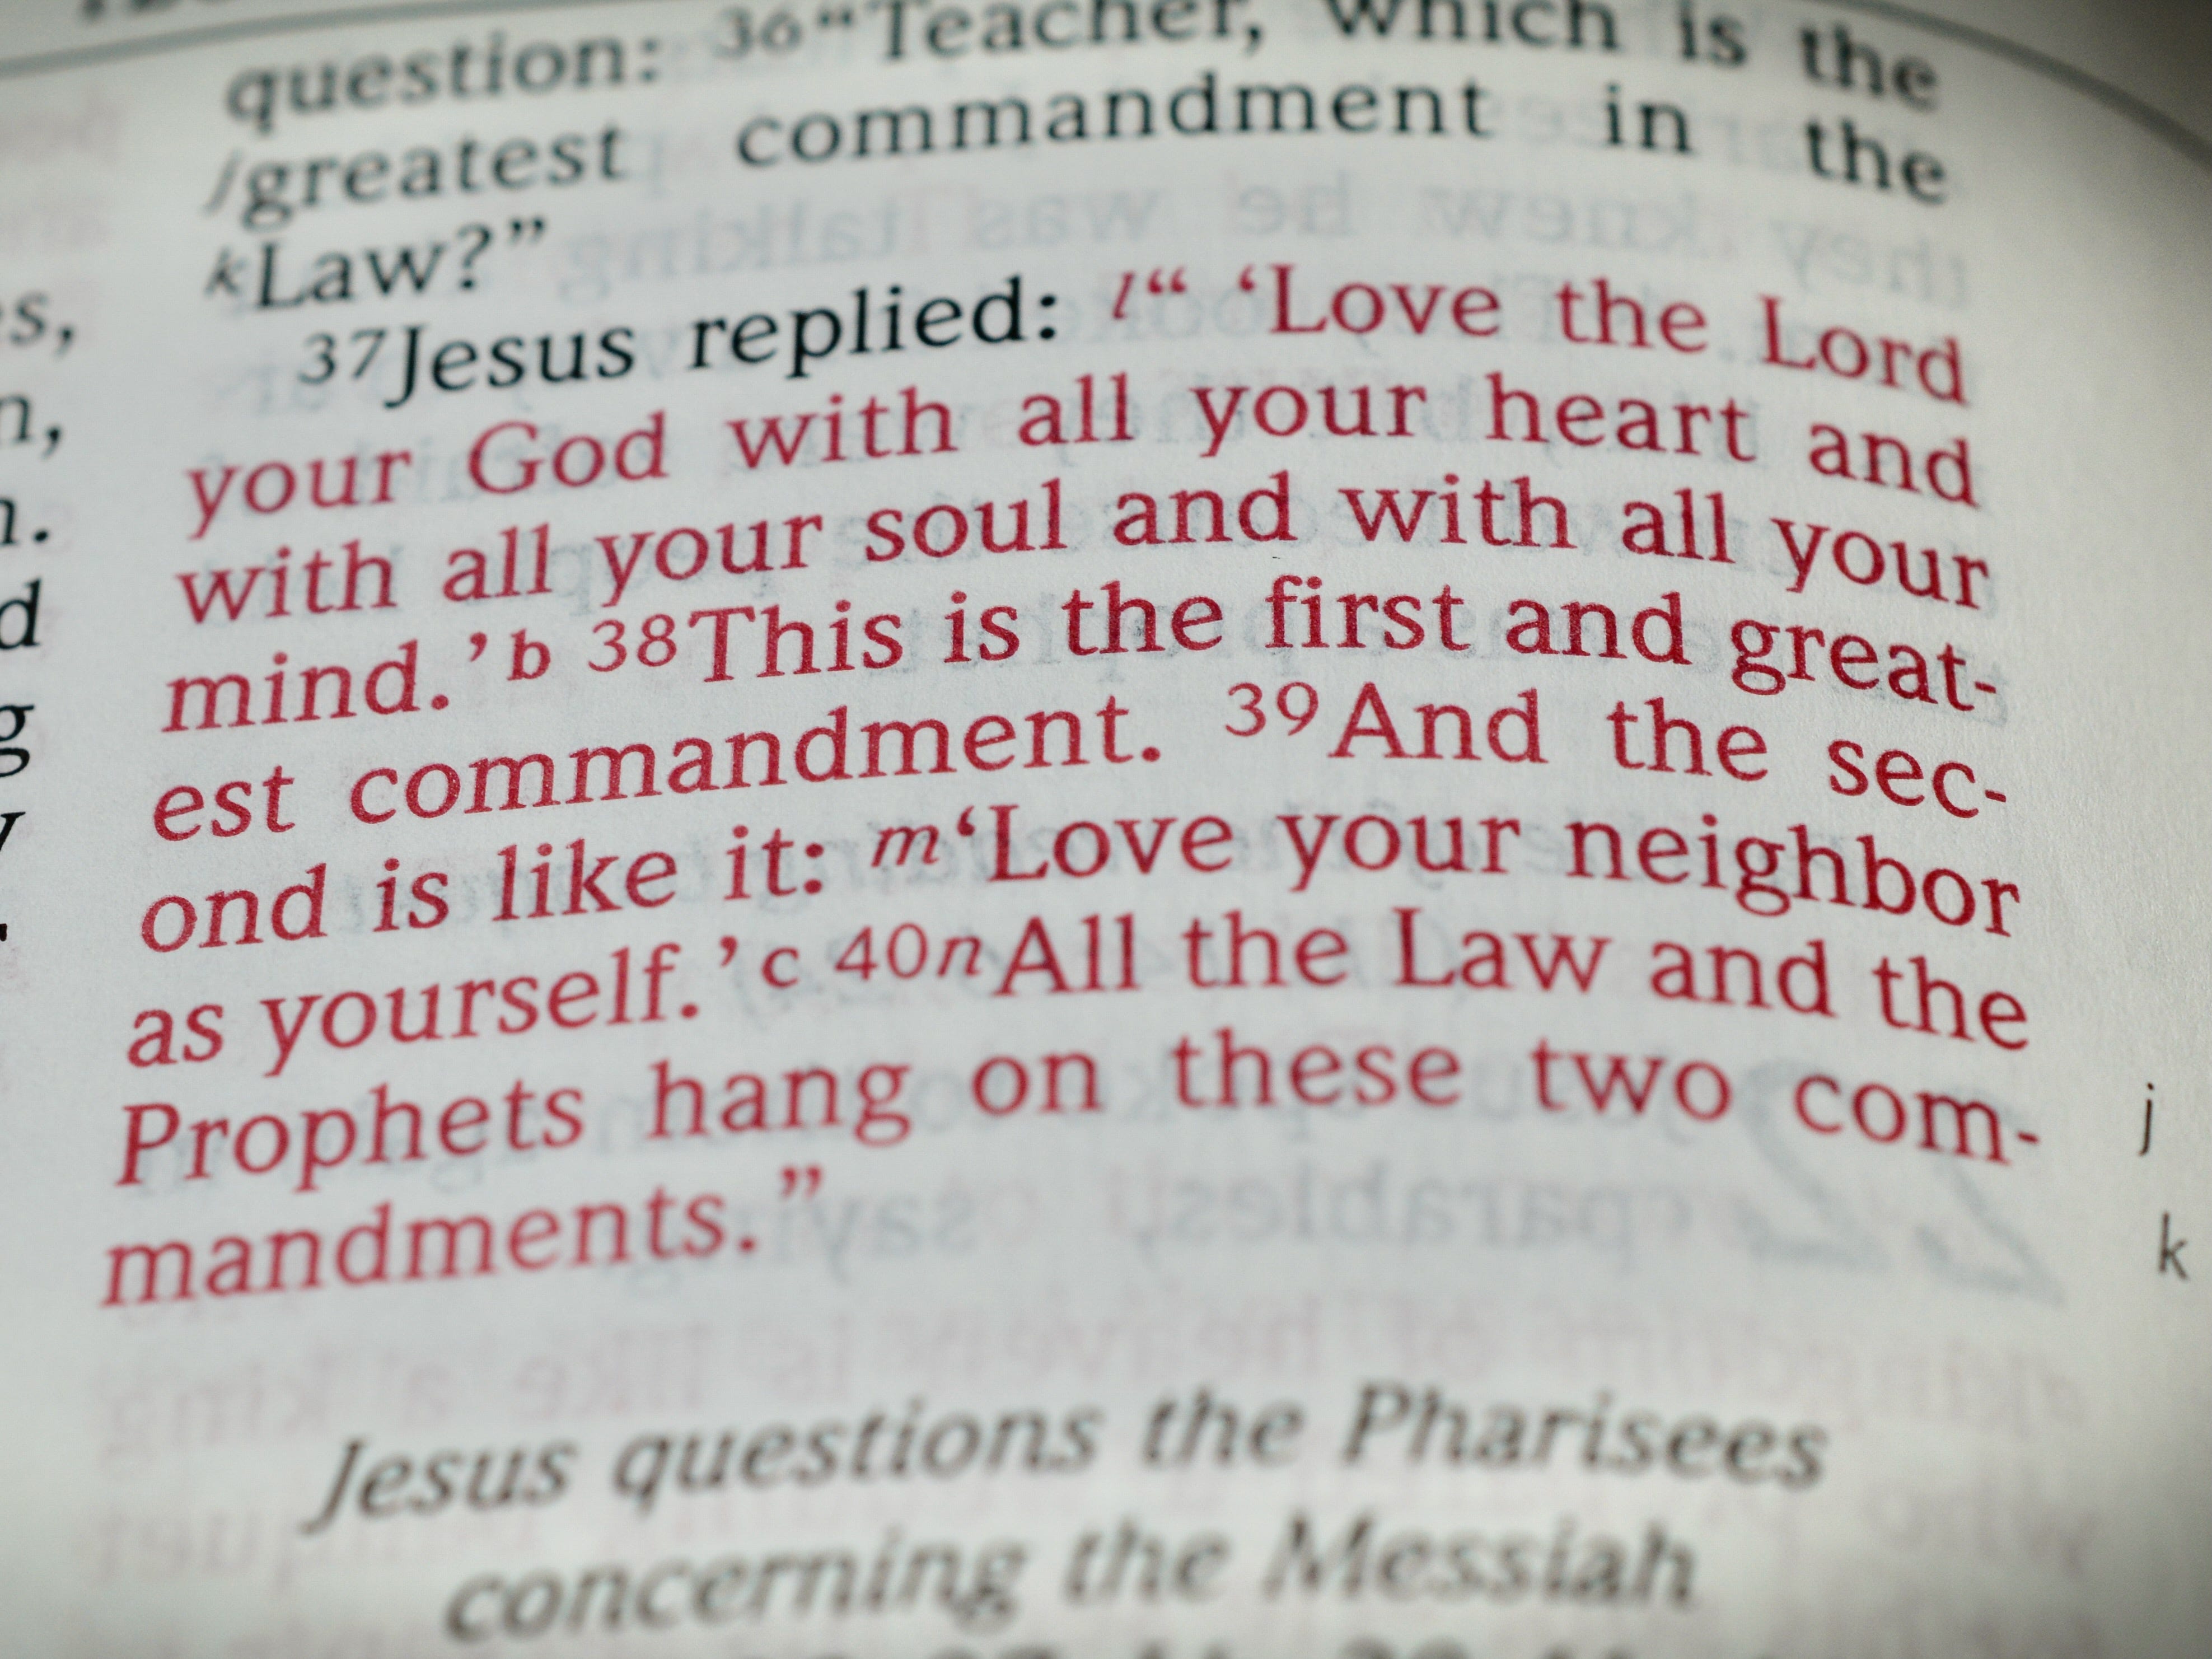 question: 36“Teacher, which is the
jgreatest commandment in the
kLaw?”
37Jesus replied: l“ ‘Love the Lord
your God with all your heart and
with all your soul and with all your
mind.’b 38This is the first and great-
est commandment. 39And the sec-
ond is like it: m‘Love your neighbor
as yourself.’c 40nAll the Law and the
Prophets hang on these two com-
mandments.”
Jesus questions the Pharisees
concerning the Messiah
s,
n,
d
g
j
k